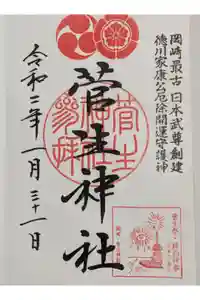 岡崎最古 日本武尊創建
徳川家康公厄除開運守護神
菅生神社
菅生
神社
参拝
令和二年一月三十一日